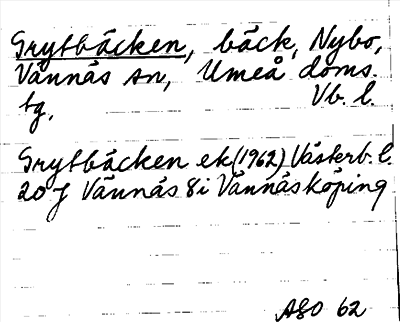 Grytbäcken, bäck, Nybo,
Vännäs sn, Umeå doms.
tg. Vb. l.
Grytbäcken ek (1962) Västerb. l.
20 J Vännäs 8i Vännäsköping
ASO 62